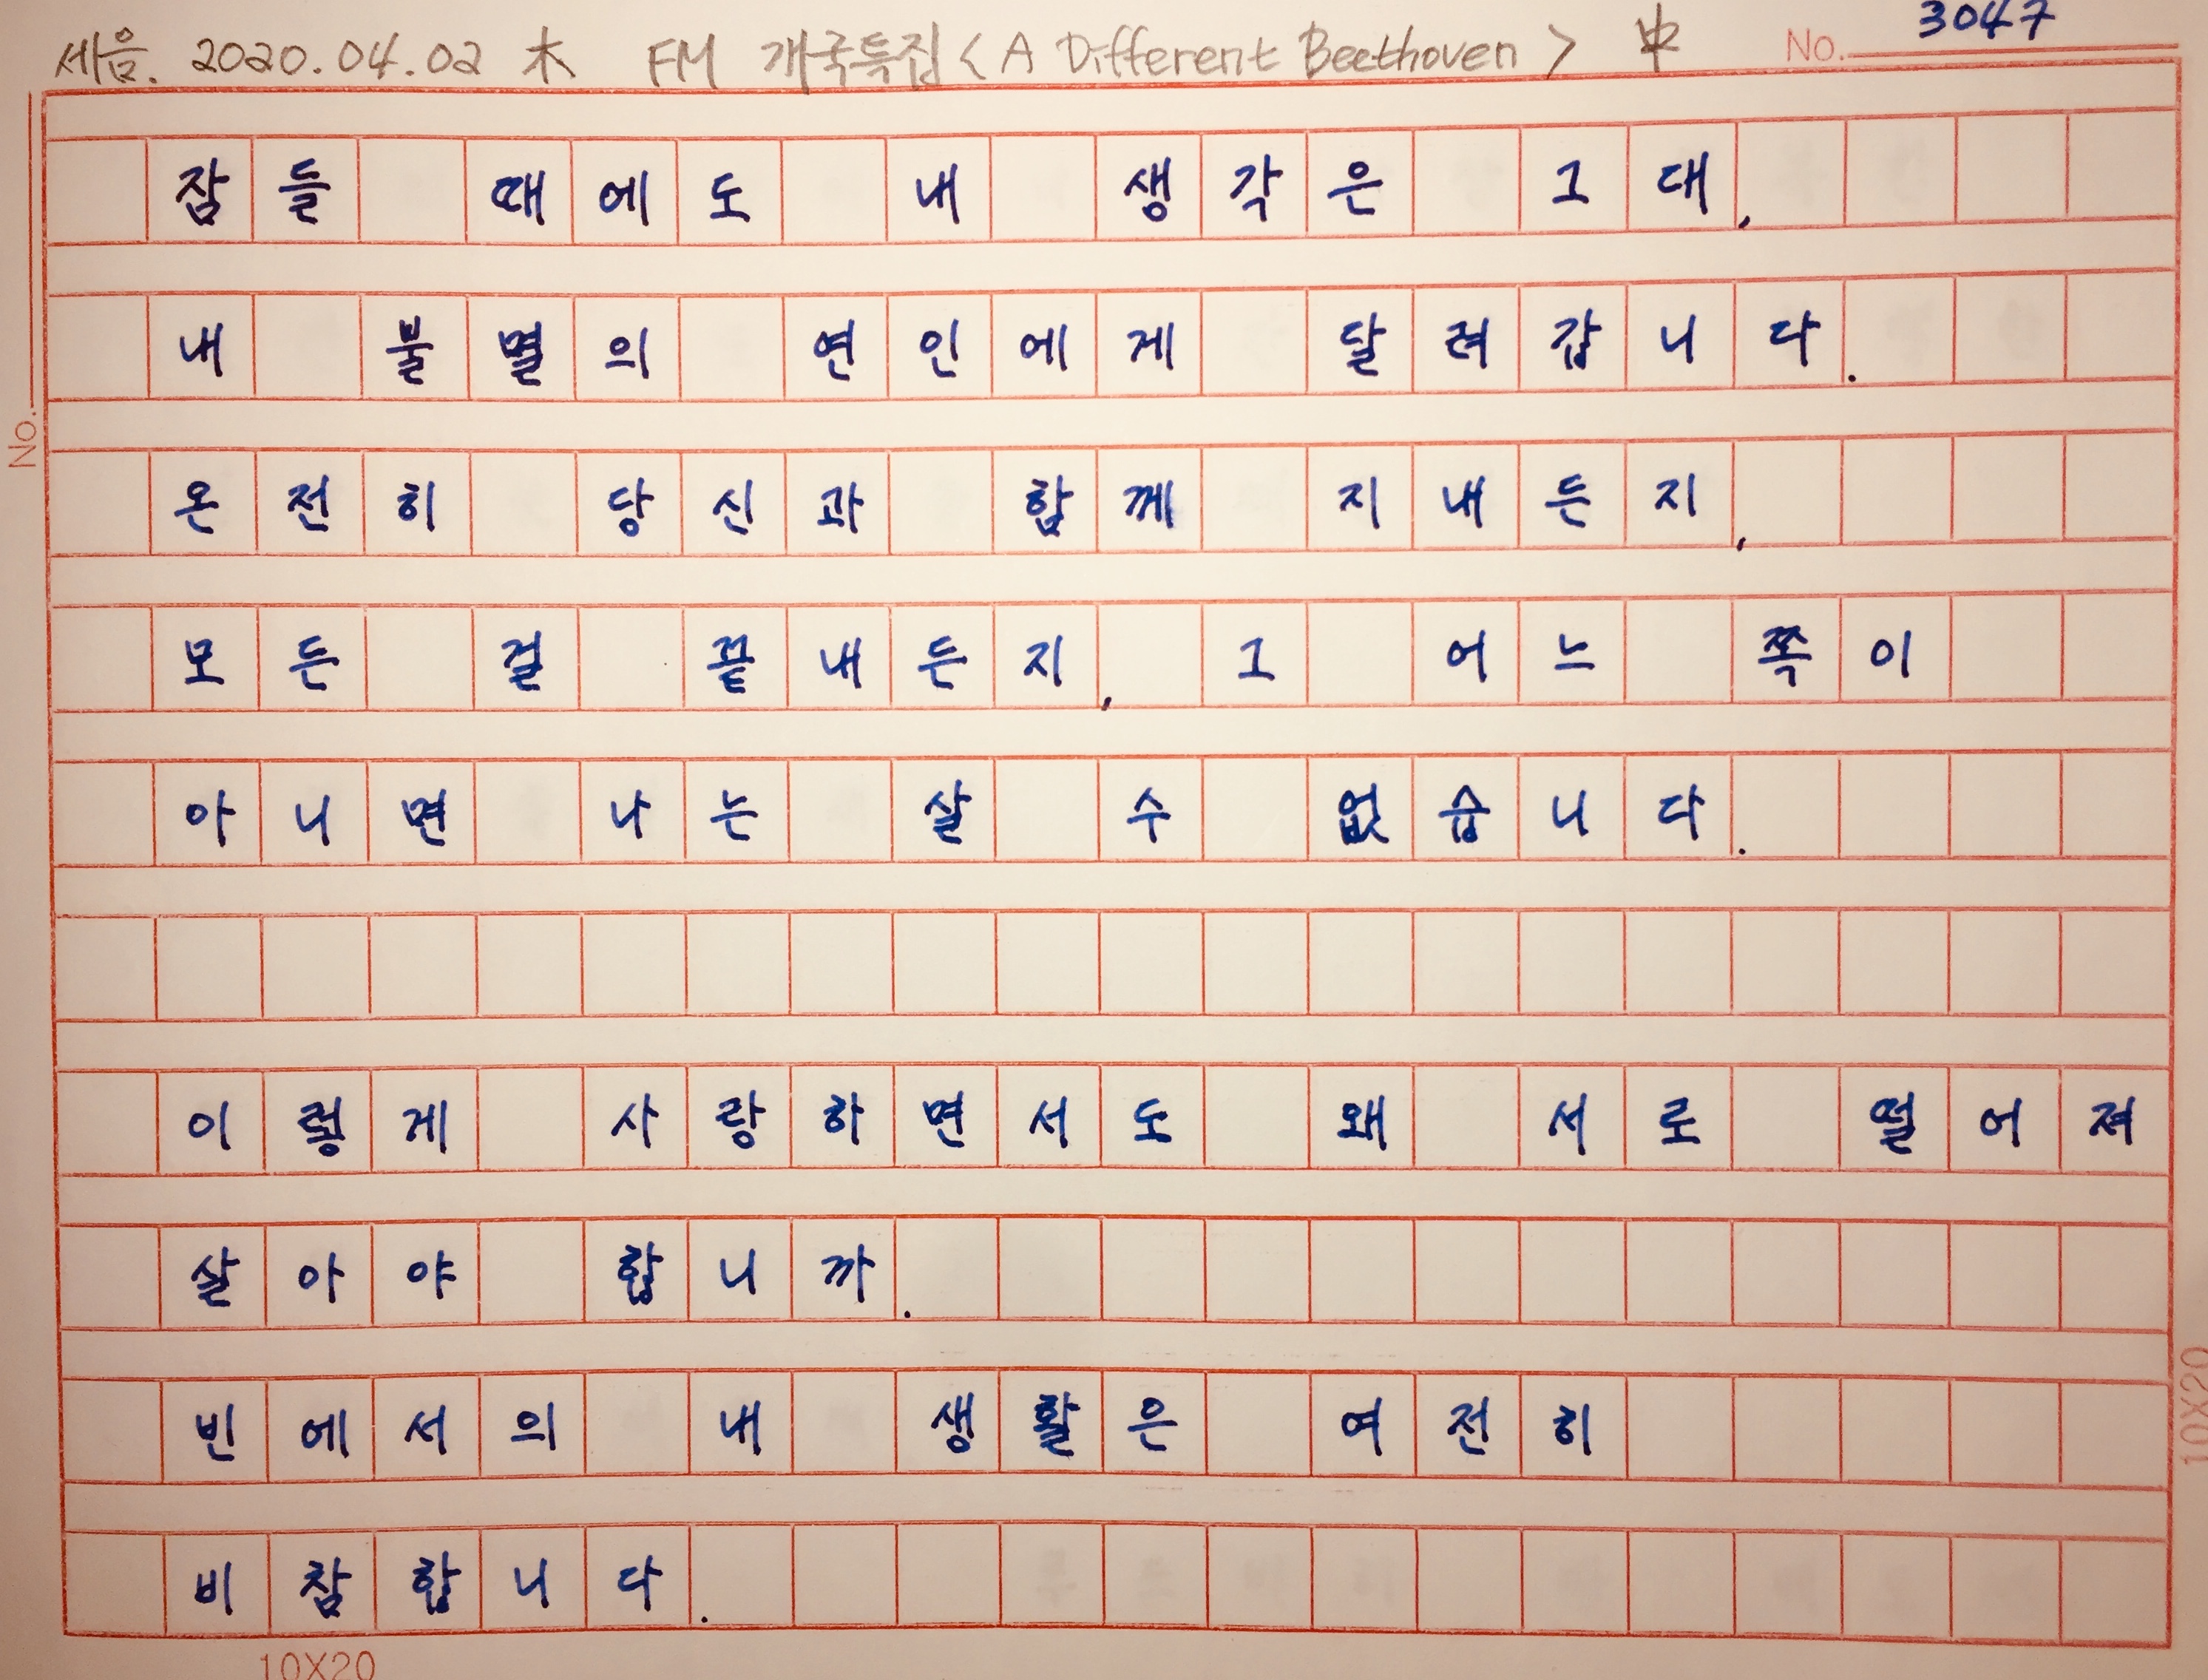 세음. 2020.04.02 木 FM 개국특집 < A Different Beethoven > 中 No. 3047
잠들 때에도 내 생각은 그대,
내 불멸의 연인에게 달려갑니다.
No.
온전히 당신과 함께 지내든지,
모든 걸 끝내든지, 그 어느 쪽이
아니면 나는 살 수 없습니다.
이렇게 사랑하면서도 왜 서로 떨어져
살아야 합니까.
빈에서의 내 생활은 여전히
10X20
비참합니다.
10X20